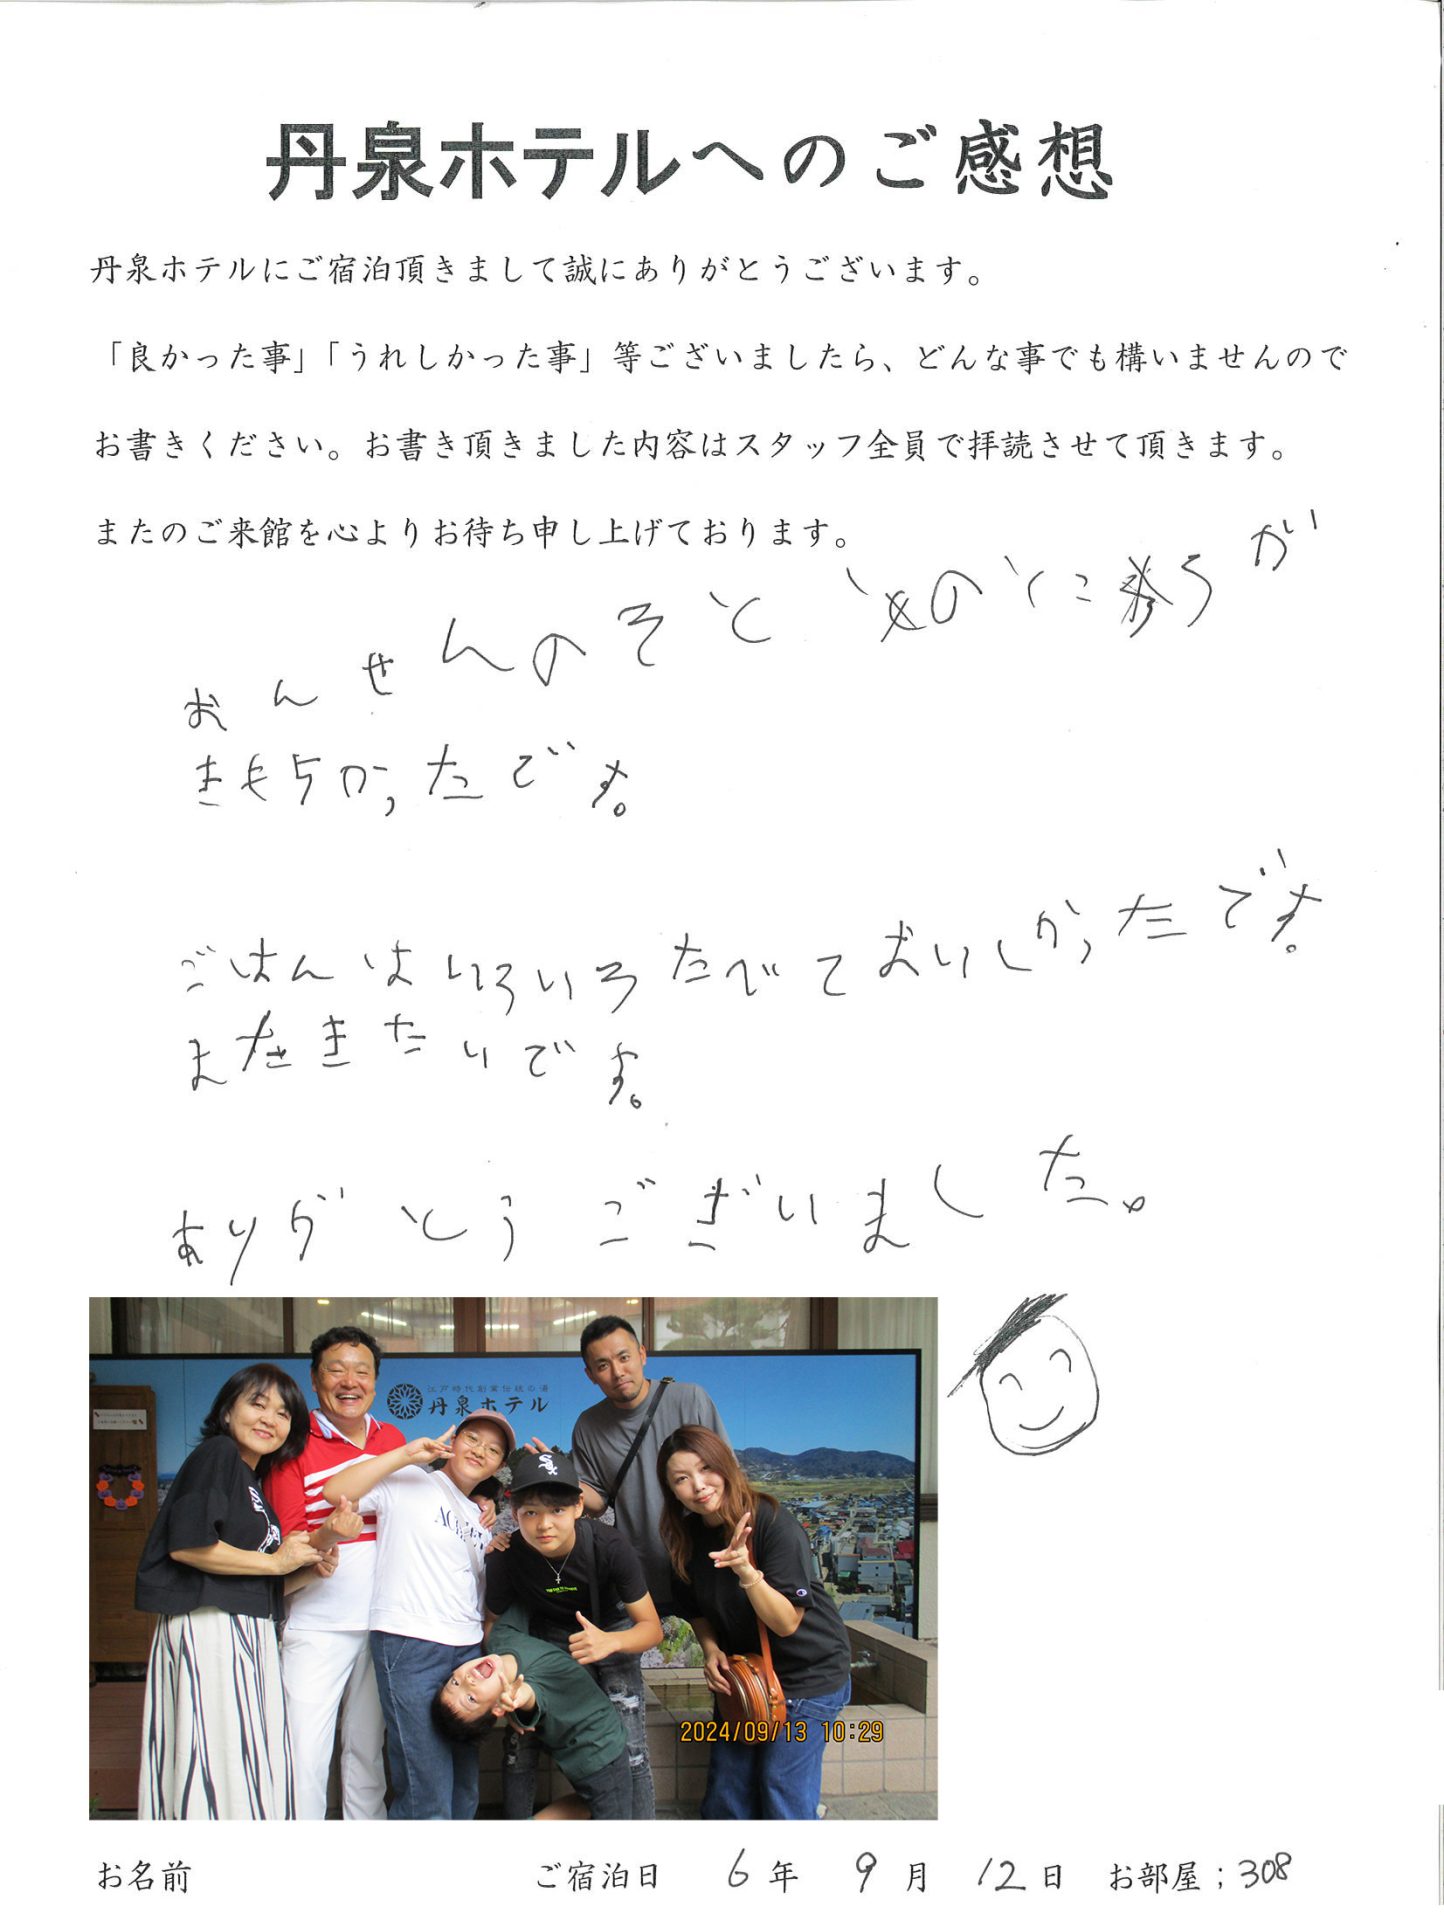 丹泉ホテルへのご感想
丹泉ホテルにご宿泊頂きまして誠にありがとうございます。
「良かった事」「うれしかった事」等ございましたら、どんな事でも構いませんので
お書きください。お書き頂きました内容はスタッフ全員で拝読させて頂きます。
またのご来館を心よりお待ち申し上げております。
おんせんのそと
が
きもちかったです。
ごはんはいろいろたべておいしかったです。
またきたいです。
ありがとうございました。
江戸時代創業伝統の湯
丹泉ホテル
2024/09/13 10:29
お名前 ご宿泊日 6年 9月 12日 お部屋;308